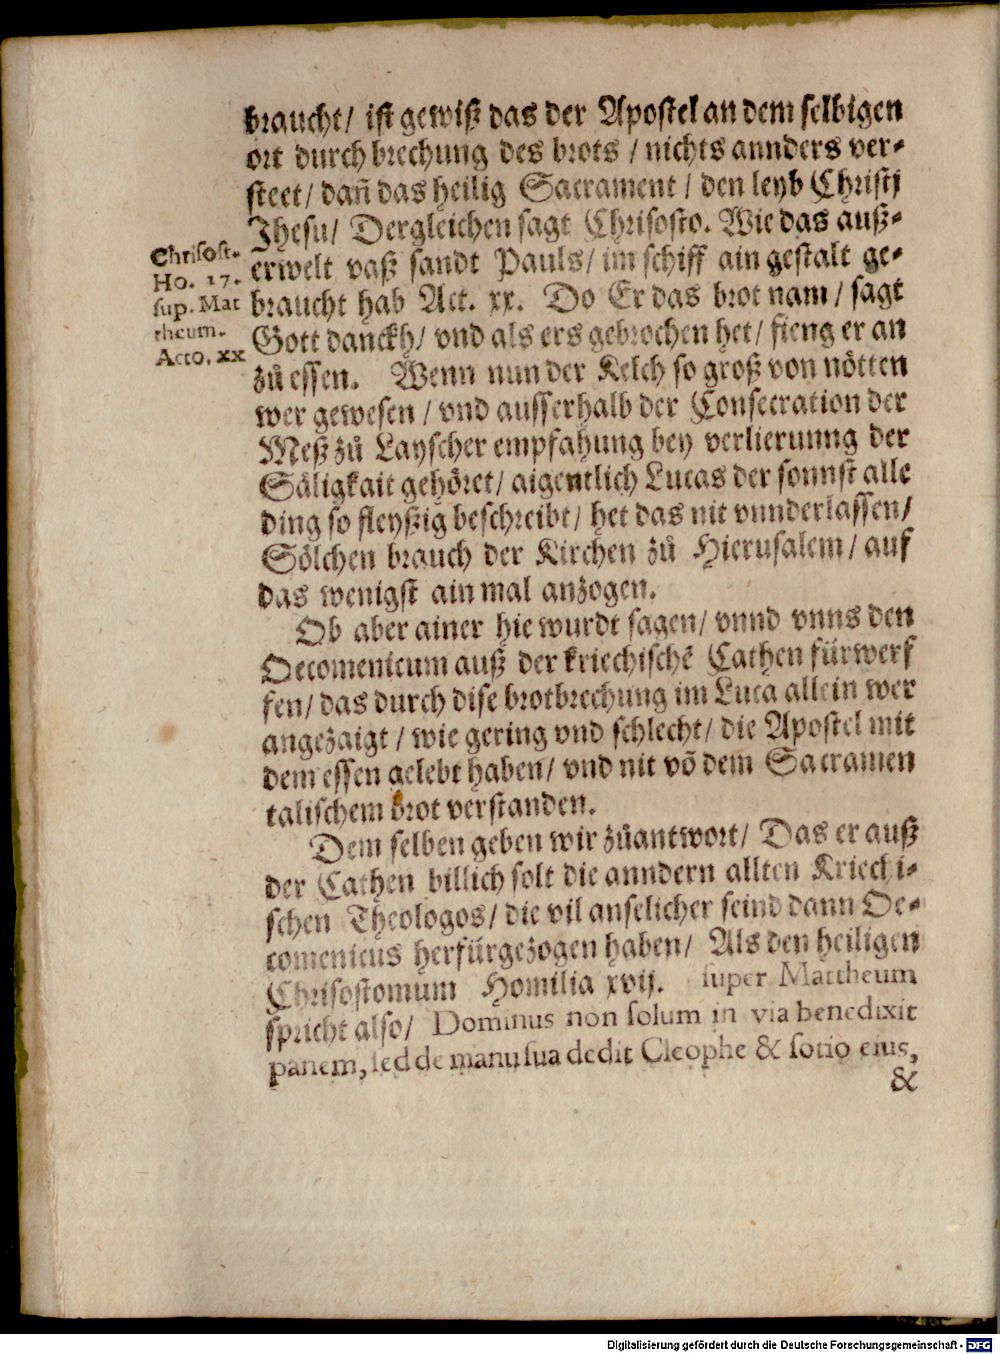 braucht/ ist gewiß das der Apostel an dem selbigen
ort durch brechung des brots / nichts annders ver⸗
steet/ dañ das heilig Sacrament / den leyb Christi
Jhesu/ Dergleichen sagt Chrisosto. Wie das auß⸗
erwelt vaß sandt Pauls/ im schiff ain gestalt ge⸗
braucht hab Act. xx. Do Er das brot nam/ sagt
Gott danckh/ vnd als ers gebrochen het/ fieng er an
zů essen. Wenn nun der Kelch so groß von nötten
wer gewesen / vnd ausserhalb der Consecration der
Meß zů Layscher empfahung bey verlierunng der
Säligkait gehöret/ aigentlich Lucas der sonnst alle
ding so fleyßig beschreibt/ het das nit vnnderlassen/
Sölchen brauch der Kirchen zů Hierusalem/ auf
das wenigst ain mal anzogen.
Chrisost.
Ho. 17.
sup. Mat
theum.
Acto. xx
Ob aber ainer hie wurdt sagen/ vnnd vnns den
Oecomenicum auß der kriechischē Cathen fürwerf
fen/ das durch dise brotbrechung im Luca allein wer
angezaigt / wie gering vnd schlecht/ die Apostel mit
dem essen gelebt haben/ vnd nit võ dem Sacramen
talischem brot verstanden.
Dem selben geben wir zůantwort/ Das er auß
der Cathen billich solt die anndern allten Kriechi⸗
schen Theologos/ die vil anselicher seind dann Oe⸗
comenicus herfürgezogen haben/ Als den heiligen
Chrisostomum Homilia xvij. super Mattheum
spricht also/ Dominus non solum in via benedixit
panem, sed de manu sua dedit Cleophe & sotio eius,
&
Digitalisierung gefördert durch die Deutsche Forschungsgemeinschaft - DFG